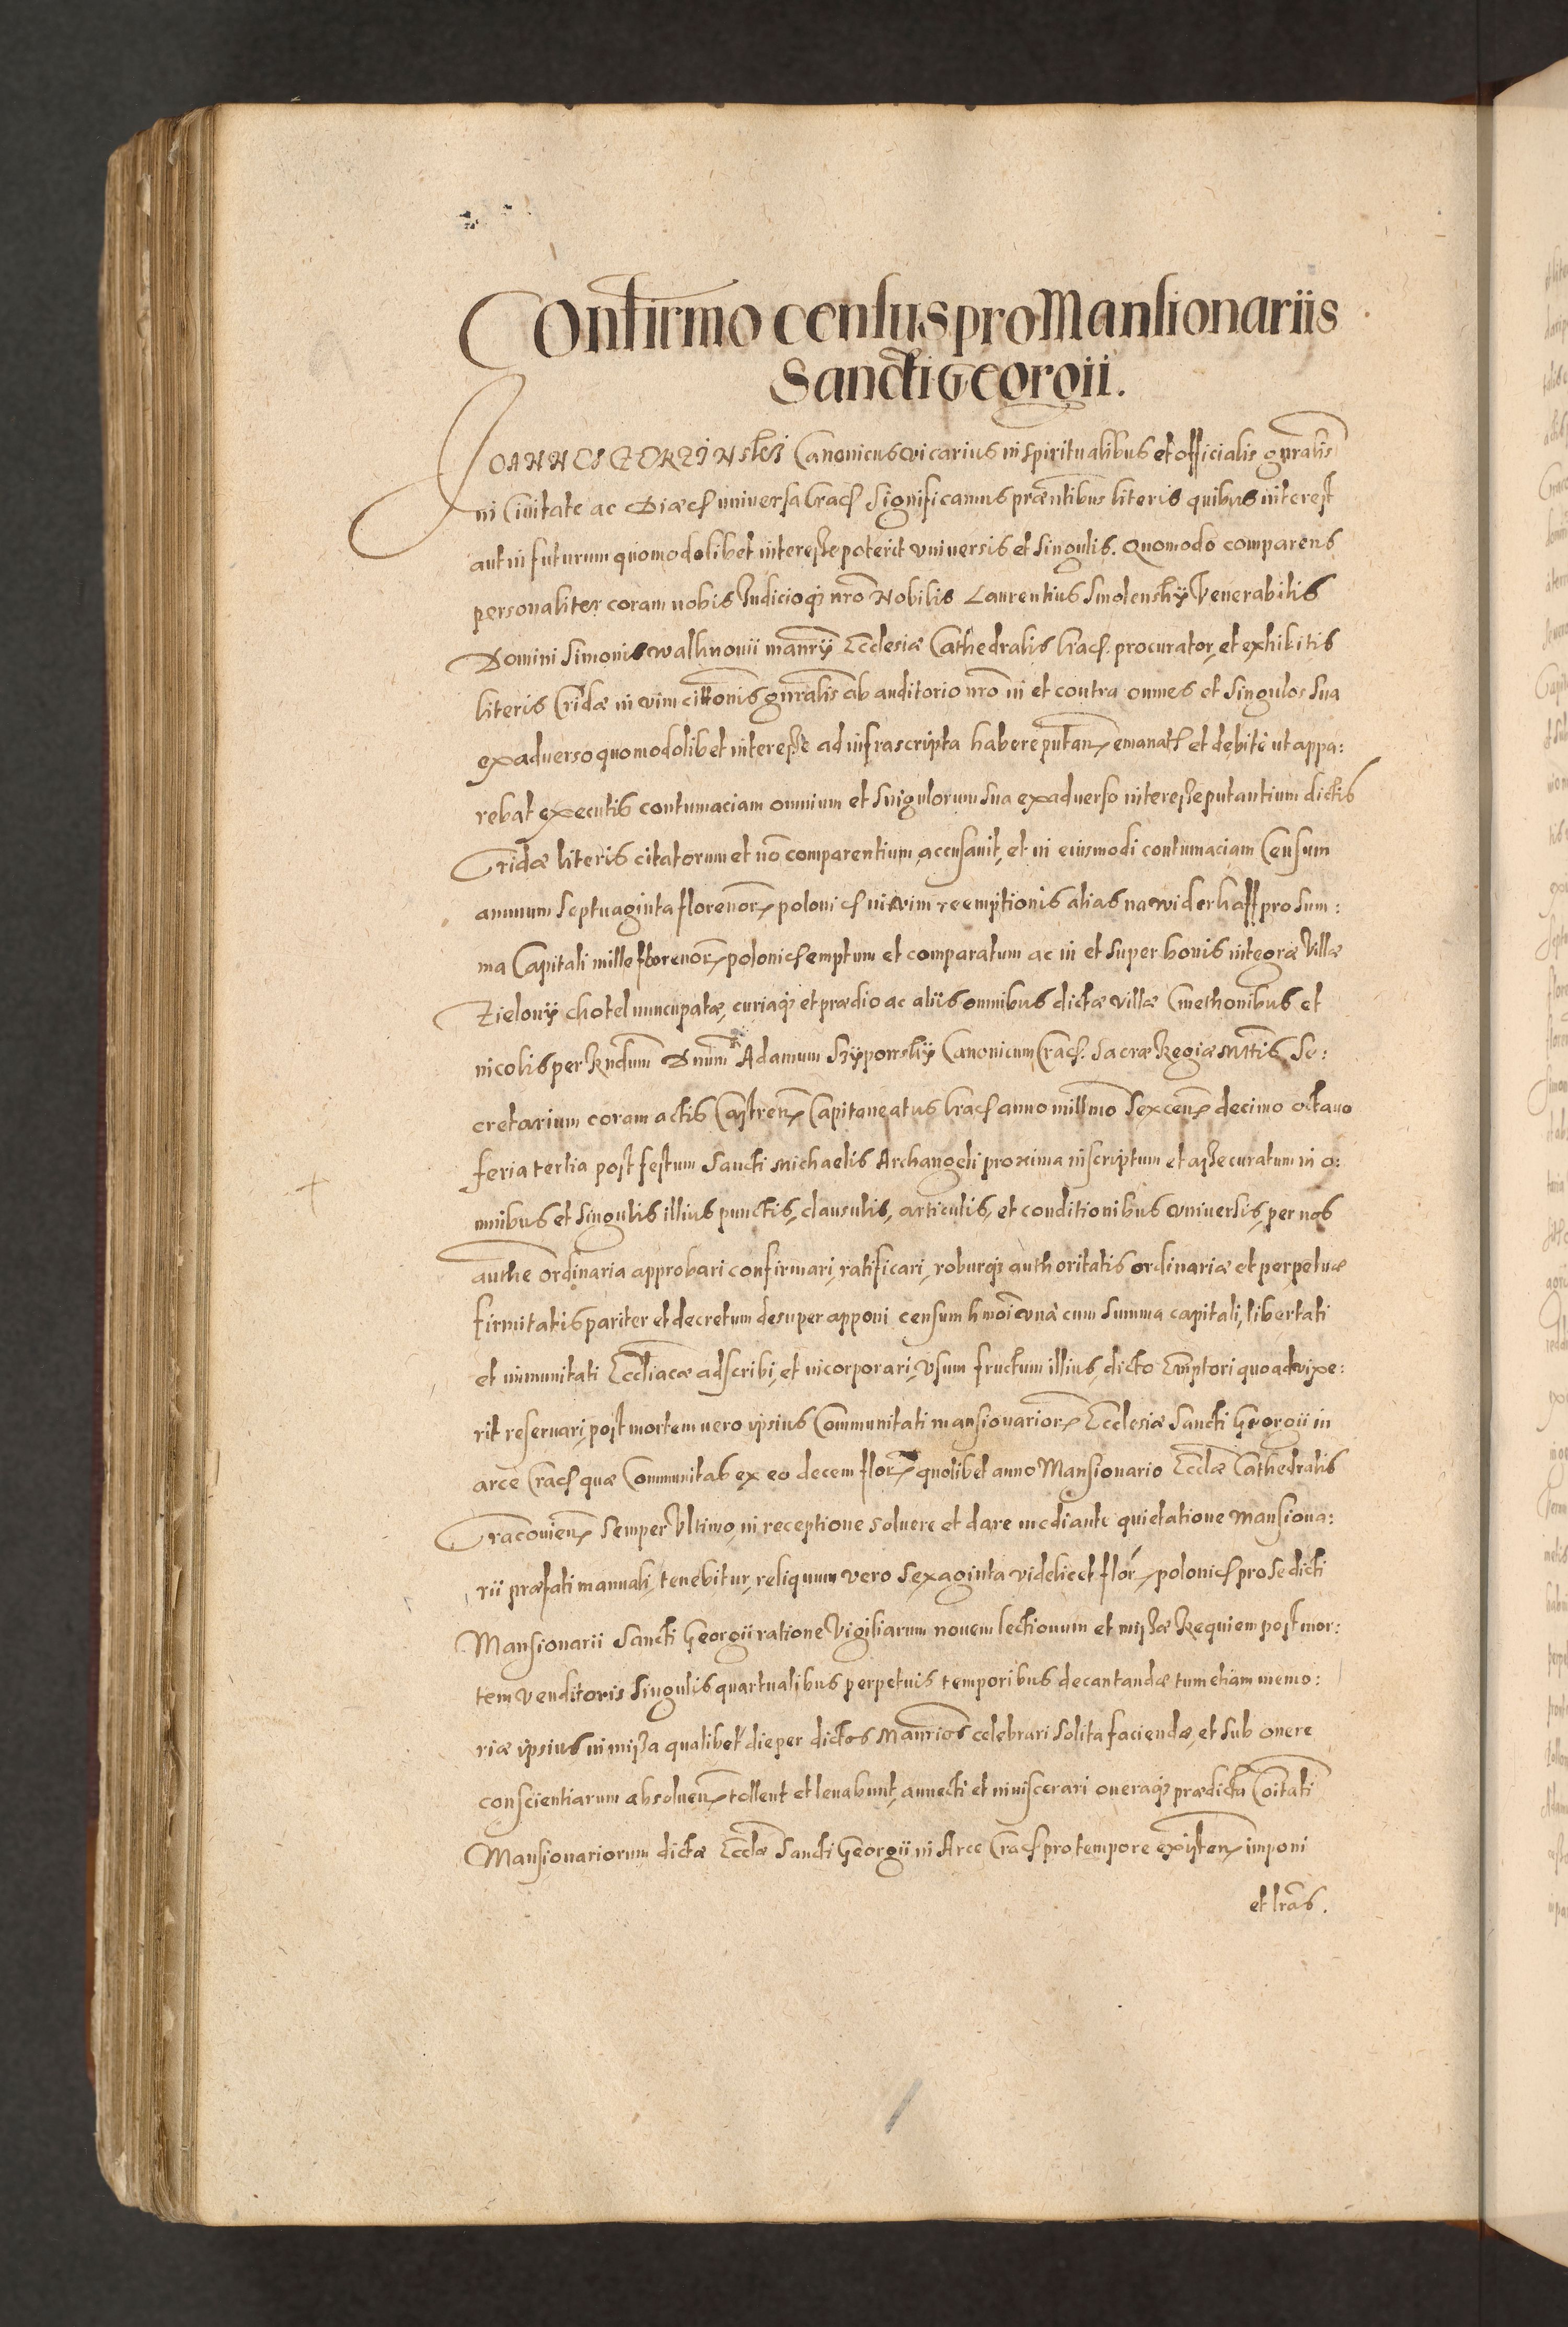 Confirmo census pro Mansionariis
Sancti Georgii.
JOANNES Canonicus vicarius in spiritualibus et officialis gnralis
in Civitate ac Diæcs universa Cracs significamus præntibus literis quibus interest
aut in futurum quomodolibet interesse poterit universis et singulis. Quomodo comparens
personaliter coram nobis Iudicioq; nro Nobilis Laurentius Smolensky Venerabilis
Domini Simonis Walknovii manrij Ecclesiæ Cathedralis Cracs. procurator, et exhibitis
literis Cridæ in vim cittonis gnralis ab auditorio nro in et contra omnes et singulos sua
ex adverso quomodolibet interesse ad infrascripta habere putan emanats et debitè ut appa:
rebat executis contumaciam omnium et singulorum sua ex adverso interesse putantium dictis
Cridæ literis citatorum et nō comparentium, accusavit, et in eiusmodi contumaciam Censum
annuum septuaginta florenor polonics in vim reemptionis alias na widerkaff pro sum:
ma Capitali mille florenor polonics emptum et comparatum ac in et super bonis integræ Villæ
Zielony chotel nuncupatæ, curiaq; et prædio ac aliis omnibus dictæ villæ Cmethonibus et
incolis per Rndum Dnum Adamum Canonicum Cracs. Sacræ Regiæ Mttis Se:
cretarium coram actis Castren Capitaneatus Cracs anno millmo sexcen decimo octavo
feria tertia post festum Sancti Michaelis Archangeli proxima inscriptum et assecuratum in o:
mnibus et singulis illius punctis, clausulis, articulis, et conditionibus universis, per nos
authe ordinaria approbari confirmari, ratificari, roburq; authoritatis ordinariæ et perpetuæ
firmitatis pariter et decretum desuper apponi censum hmoi unà cum summa capitali, libertati
et immunitati Eccliacæ adscribi, et incorporari, Vsum fructum illius, dicto Emptori quoad vixe:
rit reservari, post mortem vero ipsius Communitati mansionarior Ecclesiæ Sancti Georgii in
arce Cracs quæ Communitas ex eo decem flor quolibet anno Mansionario Ecclæ Cathedralis
Cracovien semper Vltimo, in receptione solvere et dare mediante quietatione Mansiona:
rii præfati manuali, tenebitur, reliquum vero sexaginta videlicet flor polonics pro se dicti
Mansionarii Sancti Georgii ratione Vigiliarum novem lectionum et missæ Requiem post mor:
tem venditoris singulis quartualibus perpetuis temporibus decantandæ tum etiam memo:
riæ ipsius in missa qualibet die per dictos Manrios celebrari solita faciendæ, et sub onere
conscientiarum absolven tollent et levabunt, annecti et inviscerari oneraq; prædicta Coitati
Mansionariorum dictæ Ecclæ Sancti Georgii in Arce Cracs pro tempore existen imponi
et lras.